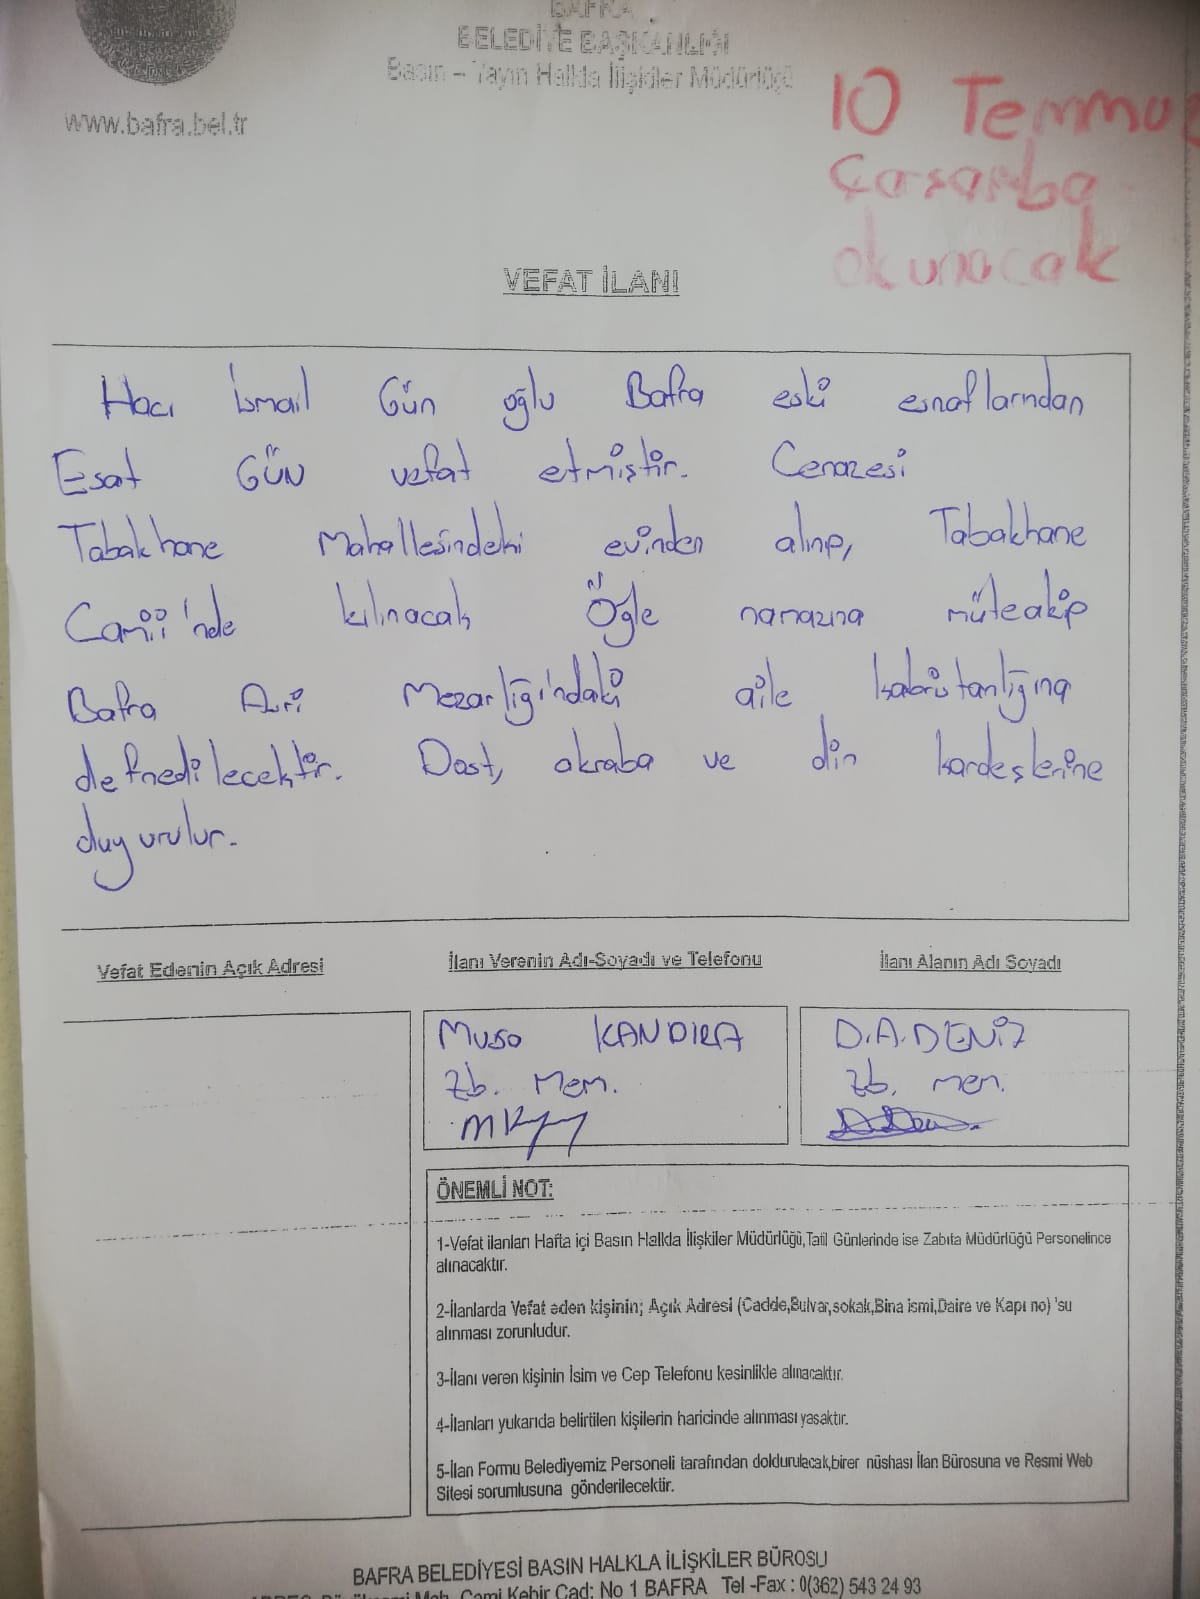 BAFRA
BELEDİYE BAŞKANLIĞI
Basın – Yayın Halkla İlişkiler Müdürlüğü
www.bafra.bel.tr
10 Temmuz
Çarşamba
okunacak
VEFAT İLANI
Hacı İsmail Gün oğlu Bafra eski esnaflarından
Esat GÜN vefat etmiştir. Cenazesi
Tabakhane Mahallesindeki evinden alınıp, Tabakhane
Camii'nde kılınacak Öğle namazına müteakip
Bafra Asri Mezarlığı'ndaki aile kabristanlığına
defnedilecektir. Dost, akraba ve din kardeşlerine
duyurulur.
Vefat Edenin Açık Adresi
İlanı Verenin Adı-Soyadı ve Telefonu
İlanı Alanın Adı Soyadı
Musa KANDIRA
Zb. Mem.
D.A.DENİZ
Zb. mem.
ÖNEMLİ NOT:
1-Vefat ilanları Hafta içi Basın Halkla İlişkiler Müdürlüğü,Tatil Günlerinde ise Zabıta Müdürlüğü Personelince
alınacaktır.
2-İlanlarda Vefat eden kişinin; Açık Adresi (Cadde,Bulvar,sokak,Bina ismi,Daire ve Kapı no) 'su
alınması zorunludur.
3-İlanı veren kişinin İsim ve Cep Telefonu kesinlikle alınacaktır.
4-İlanları yukarıda belirtilen kişilerin haricinde alınması yasaktır.
5-İlan Formu Belediyemiz Personeli tarafından doldurulacak,birer nüshası İlan Bürosuna ve Resmi Web
Sitesi sorumlusuna gönderilecektir.
BAFRA BELEDİYESİ BASIN HALKLA İLİŞKİLER BÜROSU
Cami Kebir Cad: No 1 BAFRA Tel -Fax : 0(362) 543 24 93